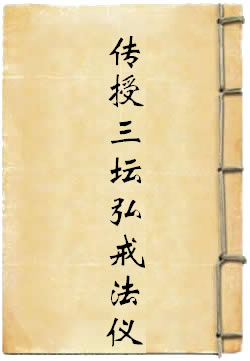 传授三坛弘戒法仪